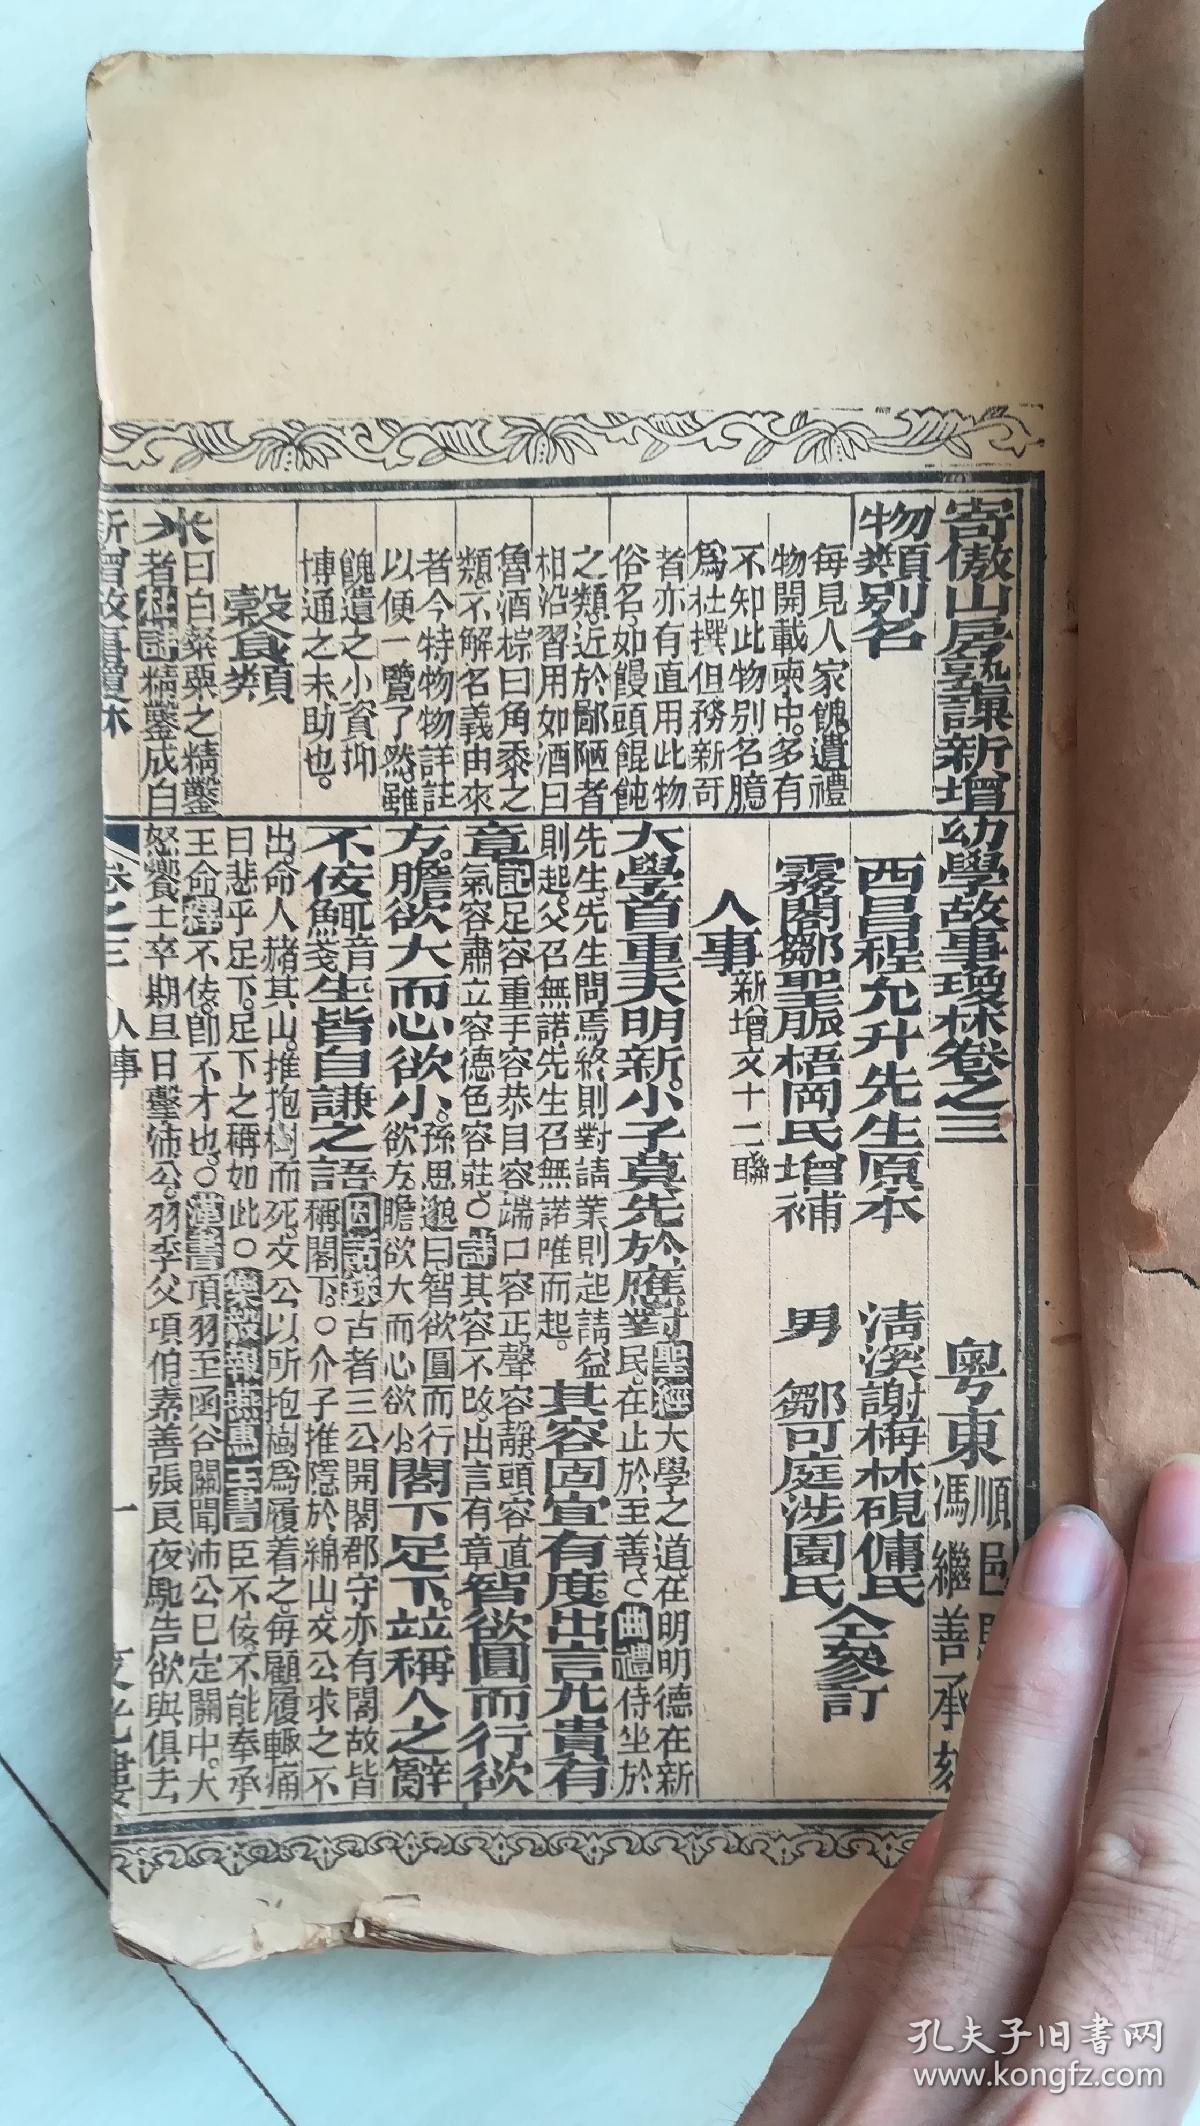 寄傲山房塾課新增幼學故事瓊林卷之三
粵東
順邑
馮繼善承刻
西昌程允升先生原本
清溪謝梅林硯傭氏
霧閣鄒聖脈梧岡氏增補
男 鄒可庭涉園氏
仝參訂
人事 新增文十二聯
大學首重夫明新小子莫先於應對
聖經大學之道在明明德在新
民在止於至善○曲禮侍坐於
先生先生問焉終則對請業則起請益
則起父召無諾先生召無諾唯而起
其容固宜有度出言尤貴有
章
記足容重手容恭目容端口容正聲容靜頭容直
氣容肅立容德色容莊○詩其容不改出言有章
智欲圓而行欲
方膽欲大而心欲小
孫思邈曰智欲圓而行
欲方膽欲大而心欲小
閣下足下竝稱人之辭
不佞鯫音生皆自謙之語
因話錄古者三公開閣郡守亦有閣故皆
稱閣下○介子推隱於綿山文公求之不
出命人赭其山推抱樹而死文公以所抱樹爲履着之每顧履輙痛
曰悲乎足下足下之稱如此○樂毅報燕惠王書臣不佞不能奉承
王命釋不佞卽不才也○漢書項羽至函谷關聞沛公已定關中大
怒饗士卒期旦日擊沛公羽季父項伯素善張良夜馳告欲與俱去
物類別名
每見人家餽遺禮
物開載柬中多有
不知此物別名臆
爲杜撰但務新奇
者亦有直用此物
俗名如饅頭餛飩
之類近於鄙陋者
相沿習用如酒曰
魯酒棕曰角黍之
類不解名義由來
者今特物物詳註
以便一覽了然雖
餽遺之小資抑
博通之未助也
穀食類
米
曰白粲粟之精鑿
者杜詩精鑿成白
新增故事瓊林
卷之三 人事
一
文光樓
孔夫子旧书网
www.kongfz.com